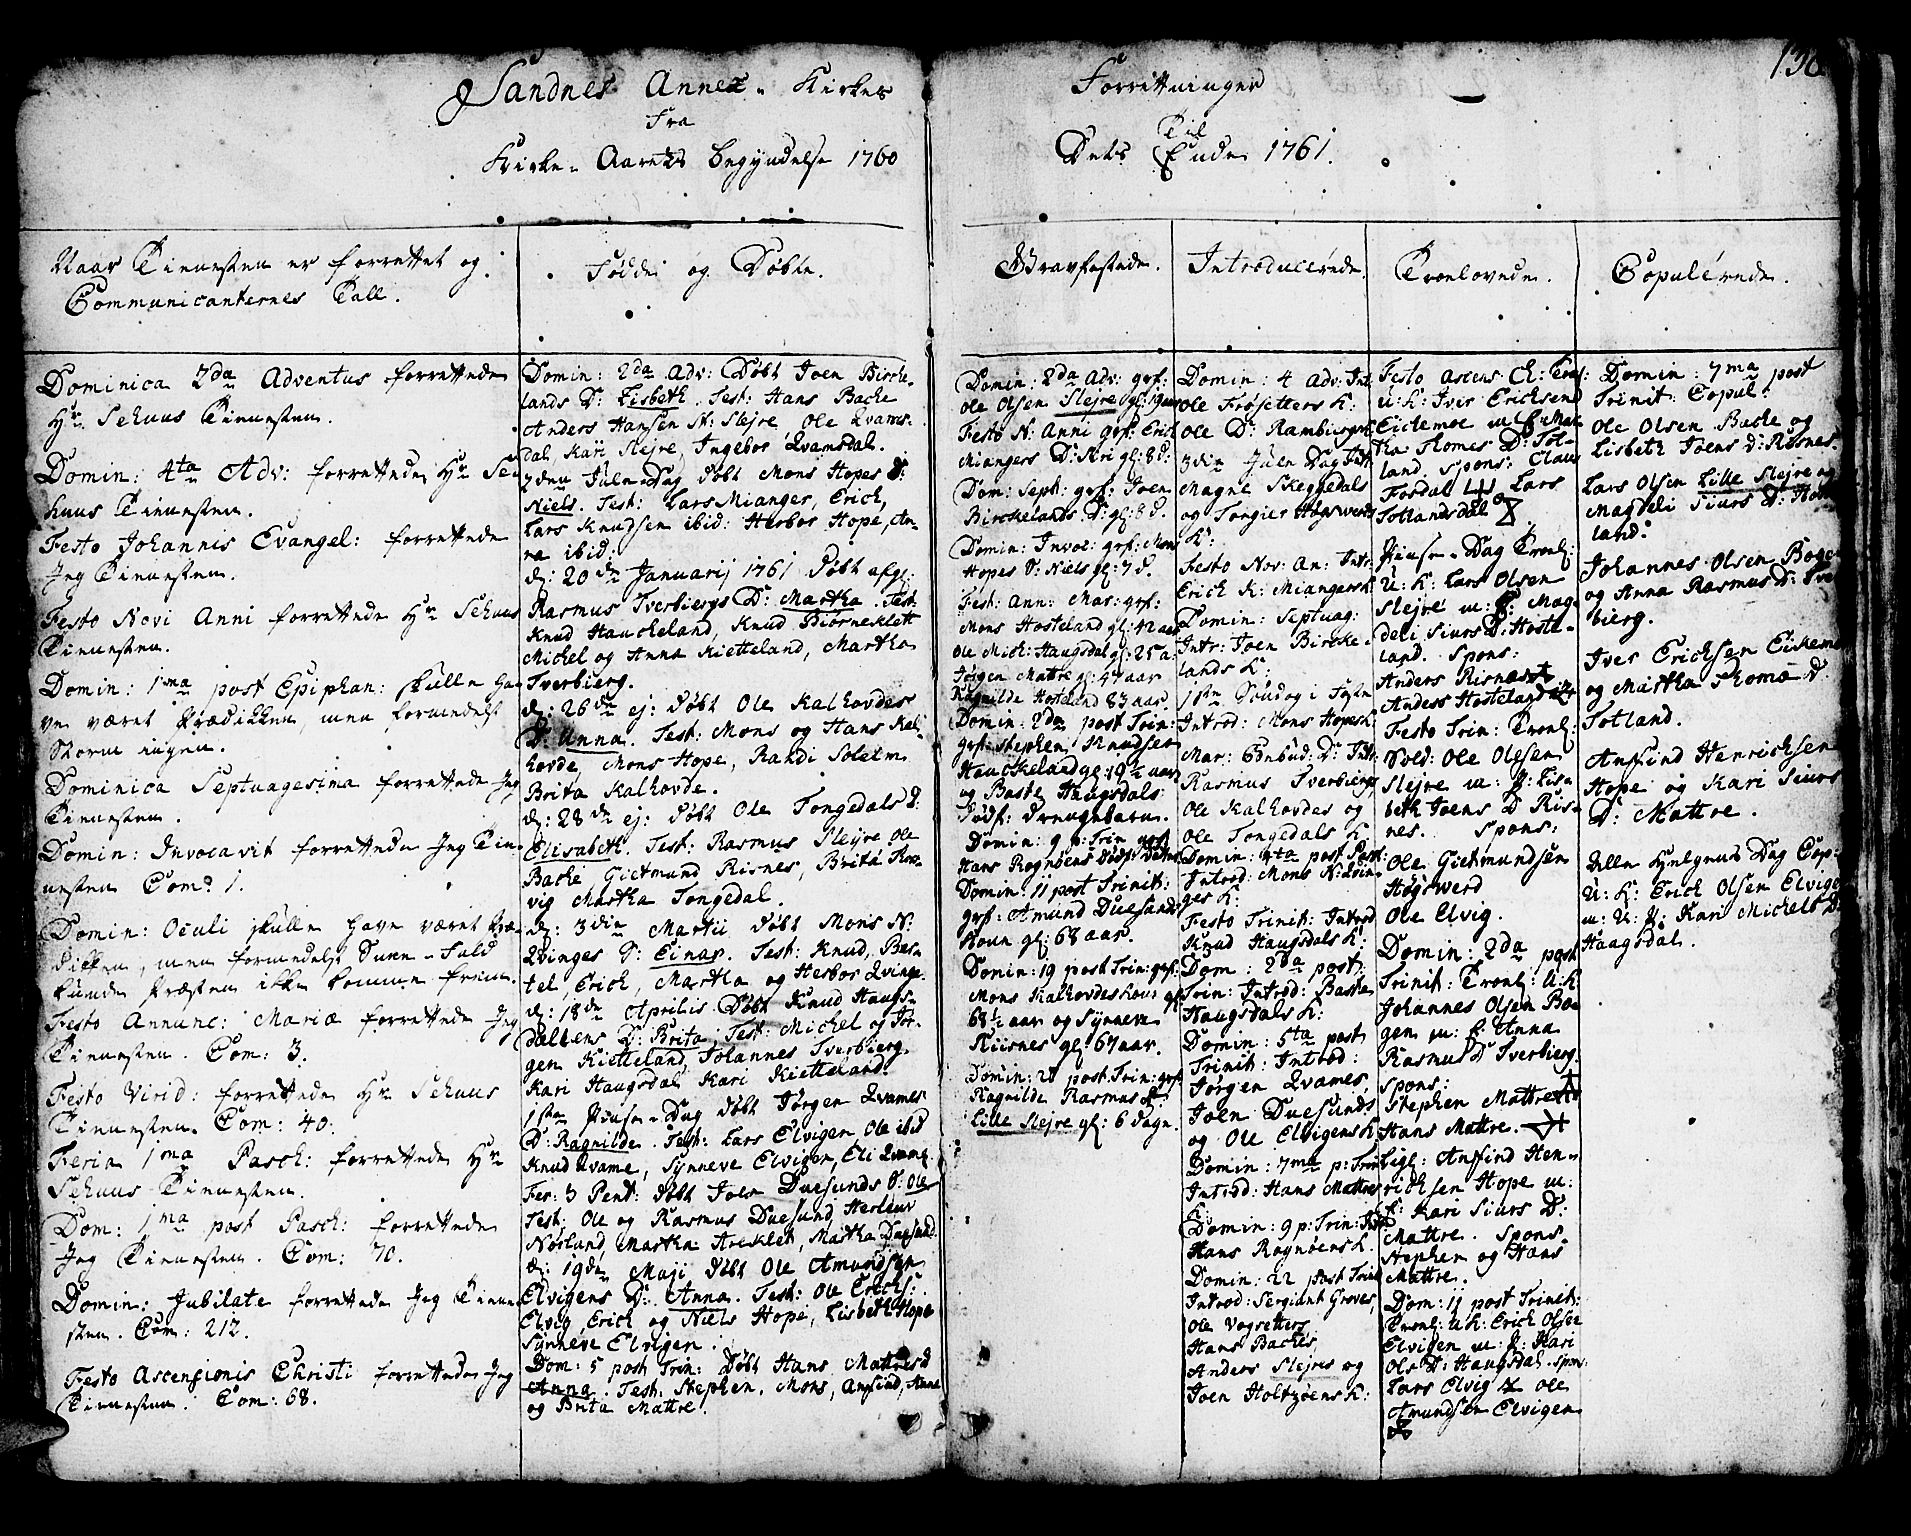 138
Sandnes Annex Kirkes Forrettninger
Fra Til
Kirke Aarets begyndelse 1760 Dets Ende 1761.
Naar Tienesten er forrettet og
Communicanternes Tall.
Dominica 2da Adventus forrettede
Hr. Schuus Tienesten.
Domin: 4ta Adv: forrettede Hr Sc
huus Tienesten.
Festo Johannes Evangel: forrettede
Jeg Tienesten.
Festo Novi Anni forrettede Hr Schuus
Tienesten.
Domin: 1ma post Epiphan: skulle ha
ve været Prædikken, men formedelst
Storm ingen.
Dominica Septuagesima forrettede Jeg
Tienesten.
Domin: Invocavit forrettede Jeg Tie
nesten Com: 1.
Domin: Oculi skulle have været Præ
dikken, men formedelst Snee-Fald
kunde Præsten ikke komme frem.
Festo Annunc: Mariæ forrettede Jeg
Tienesten. Com: 3.
Festo Virid: forrettede Hr Schuus
Tienesten. Com: 40.
Feria 1ma Pasch: forrettede Hr
Schuus Tienesten.
Dom: 1ma post Pasch: forrettede
Jeg Tienesten. Com: 70.
Domin: Jubilate forrettede Jeg Tiene
sten. Com: 212.
Festo Ascensionis Christi forrettede Jeg
Tienesten. Com: 68.
Fødde og Døbte.
Domin: 2da Adv: Døbt Joen Bircke
lands D: Lisbeth. Test: Hans Backe
Anders Hansen N: Slejre, Ole Qvams
dal Kari Slejre, Ingebor Qvamsdal.
2den Jule Dag døbt Mons Hopes S:
Niels. Test: Lars Mianger, Erich,
Lars Knudsen ibid: Herbor Hope, An
na ibid:
d: 20de Januarij 1761 døbt afg:
Rasmus Tverbiergs D: Martha. Test:
Knud Hauckeland, Knud Biørneklett
Michel og Anna Kietteland, Martha
Tverbierg.
d: 26de ej: døbt Ole Kalhovdes
D: Anna. Test: Mons og Hans Kal
hovde, Mons Hope, Randi Solelm
Brita Kalhovde.
d: 28de ej: døbt Ole Tongedals D:
Elisabeth. Test: Rasmus Slejre Ole
Backe Gietmund Risnes, Brita
vig Martha Tongedal.
d: 3die Martii døbt Mons N:
Qvinges S: Einar. Test: Knud, Bas
tel, Erich, Martha og Herbor Qvinge.
d: 18de Aprilis Døbt Knud Haugs
dalhens D: Brita, Test: Michel og Jør
gen Kietteland, Johannes Tverbierg
Kari Haugsdal, Kari Kietteland.
1ste Pinse Dag døbt Jørgen Qvames
D: Ragnilde. Test: Lars Elvigen Ole ibid
Knud Qvame, Synneve Elvigen, Eli Qvame.
Fer: 3 Pent: døbt Joen Duesunds S: Ole
Test: Ole og Rasmus Duesund, Herleur
Norland, Martha Areklet, Martha Duesund.
d: 19de Maji døbt Ole Amundsen
Elvigens D: Anna. Test: Ole Erichs:
Elvig, Erich og Niels Hope, Lisbeth Hope
Synneve Elvigen.
Dom: 5 post Trin: Døbt Hans Mattres D:
Anna. Test: Stephen, Mons, Anfind, Anna
og Brita Mattre.
Gravfæstede.
Domin: 2da Adv: grf:
Ole Olsen Slejre gl: 19 aar
Festo N: Anni grf: Erich
Miangers D: Siri gl: 8 d:
Dom: Sept: grf: Joen
Birckelands D: gl: 8 d.
Domin: Invoc: grf: Mons
Hopes S: Niels gl: 7 d.
Fest: Ann: Mar: grf:
Mons Hosteland gl: 42 aar
Ole Mich: Haugsdal gl: 25 a:
Jørgen Mattre gl: 47 aar
Ragnilde Hosteland 83 aar.
Domin: 2da post Trin:
grf: Stephen Knudsen
Hauckeland gl: 19½ aar
og Baste Haugsdals
Dødf: Drengebarn.
Domin: 9 p: Trin grf:
Hans Rognøens Dødf: Datter
Domin: 11 post Trinit:
grf: Amund Duesunds
Kone gl: 68 aar.
Domin: 19 post Trin: grf:
Mons Kalhovdes Kone gl:
68½ aar og Synneve
Riisnes gl: 67 aar.
Domin: 21 post Trin: grf:
Ragnilde Rasmus D:
Lille Slejre gl: 6 Dage.
Introducerede.
Domin: 4 Adv: Int
Ole Frøsetters K:
Ole D: Rambiergs K
3die Jule Dag Int
Magne Skeggedals
og Torgier Høgswerds
K:
Festo Nov: An: Intr:
Erich K: Miangers K
Domin: Septuag:
Intr: Joen Bircke
lands K:
1ste Søndag i Faste
Introd: Mons Hopes K:
Mar: Bønbud: D: Intr
Rasmus Tverbiergs
Ole Kalhovdes og
Ole Tongedals K:
Domin: 4ta post Pasc:
Introd: Mons N: Qvin
ges K:
Festo Trinit: Introd
Knud Haugsdals K:
Dom: 2da post:
Trin: Introd: Baste
Haugsdals K:
Domin: 5ta post
Trinit: Introd:
Jørgen Qvames,
Joen Duesunds
og Ole Elvigens K
Domin: 7ma p: Trin
Introd: Hans Mattres
K:
Domin: 9 p: Trin: Int
Hans Rognøens K.
Domin: 22 post Trin
Introd: Sergiant Groves,
Ole Vogretters
Hans Backes,
Anders Slejres og
Joen Holtzøens K:
Troelovede.
Festo Ascens Ch: Troe:
U: K: Iver Erichsen
Eidemoe m: P: Mar
tha Thomes D: Tot
land. Spons: Claus
Fosdal Lars
Totlandsdal
Pinse Dag Troel:
U: K: Lars Olsen
Slejre m: P: Mag
deli Siurs D: Hoste
land. Spons:
Anders Risnes
Anders Hosteland
Festo Trin: Troel:
Sold: Ole Olesen
Slejre m: P: Lis
beth Joens D: Ris
nes. Spons:
Ole Gietmundsen
Høgswerd
Ole Elvig.
Domin: 2da post
Trinit: Troel: U: K
Johannes Olsen Bou
gen m: P: Anna
Rasmus D: Tverbierg.
Spons:
Stephen Mattre
Hans Mattre.
Ligl: Anfind Hen
richsen Hope m:
P: Kari Siurs D:
Mattre. Spons:
Stephen og Hans
Mattre.
Dom: 11 post Trinit:
Troel: U: K: Erich Olsen
Elvigen m: P: Kari
Ols D: Haugsdal. Spon:
Lars Elvig Ole
Amundsen Elvigen
Copulerede.
Domin: 7ma post
Trinit: Copul:
Ole Olsen Backe og
Lisbeth Joens D: Risnes
Lars Olsen Lille Slejre og
Magdeli Siurs D: Hoste
land.
Johannes Olsen Bogen
og Anna Rasmus D: Tver
bierg.
Iver Erichsen Eidemoe
og Martha Thomæ D:
Totland.
Anfind Henrichsen
Hope og Kari Siurs
D: Mattre.
Alle Helgens Dag Cop:
U: K: Erich Olsen Elvigen
m: U: P: Kari Michels D:
Haagsdal.